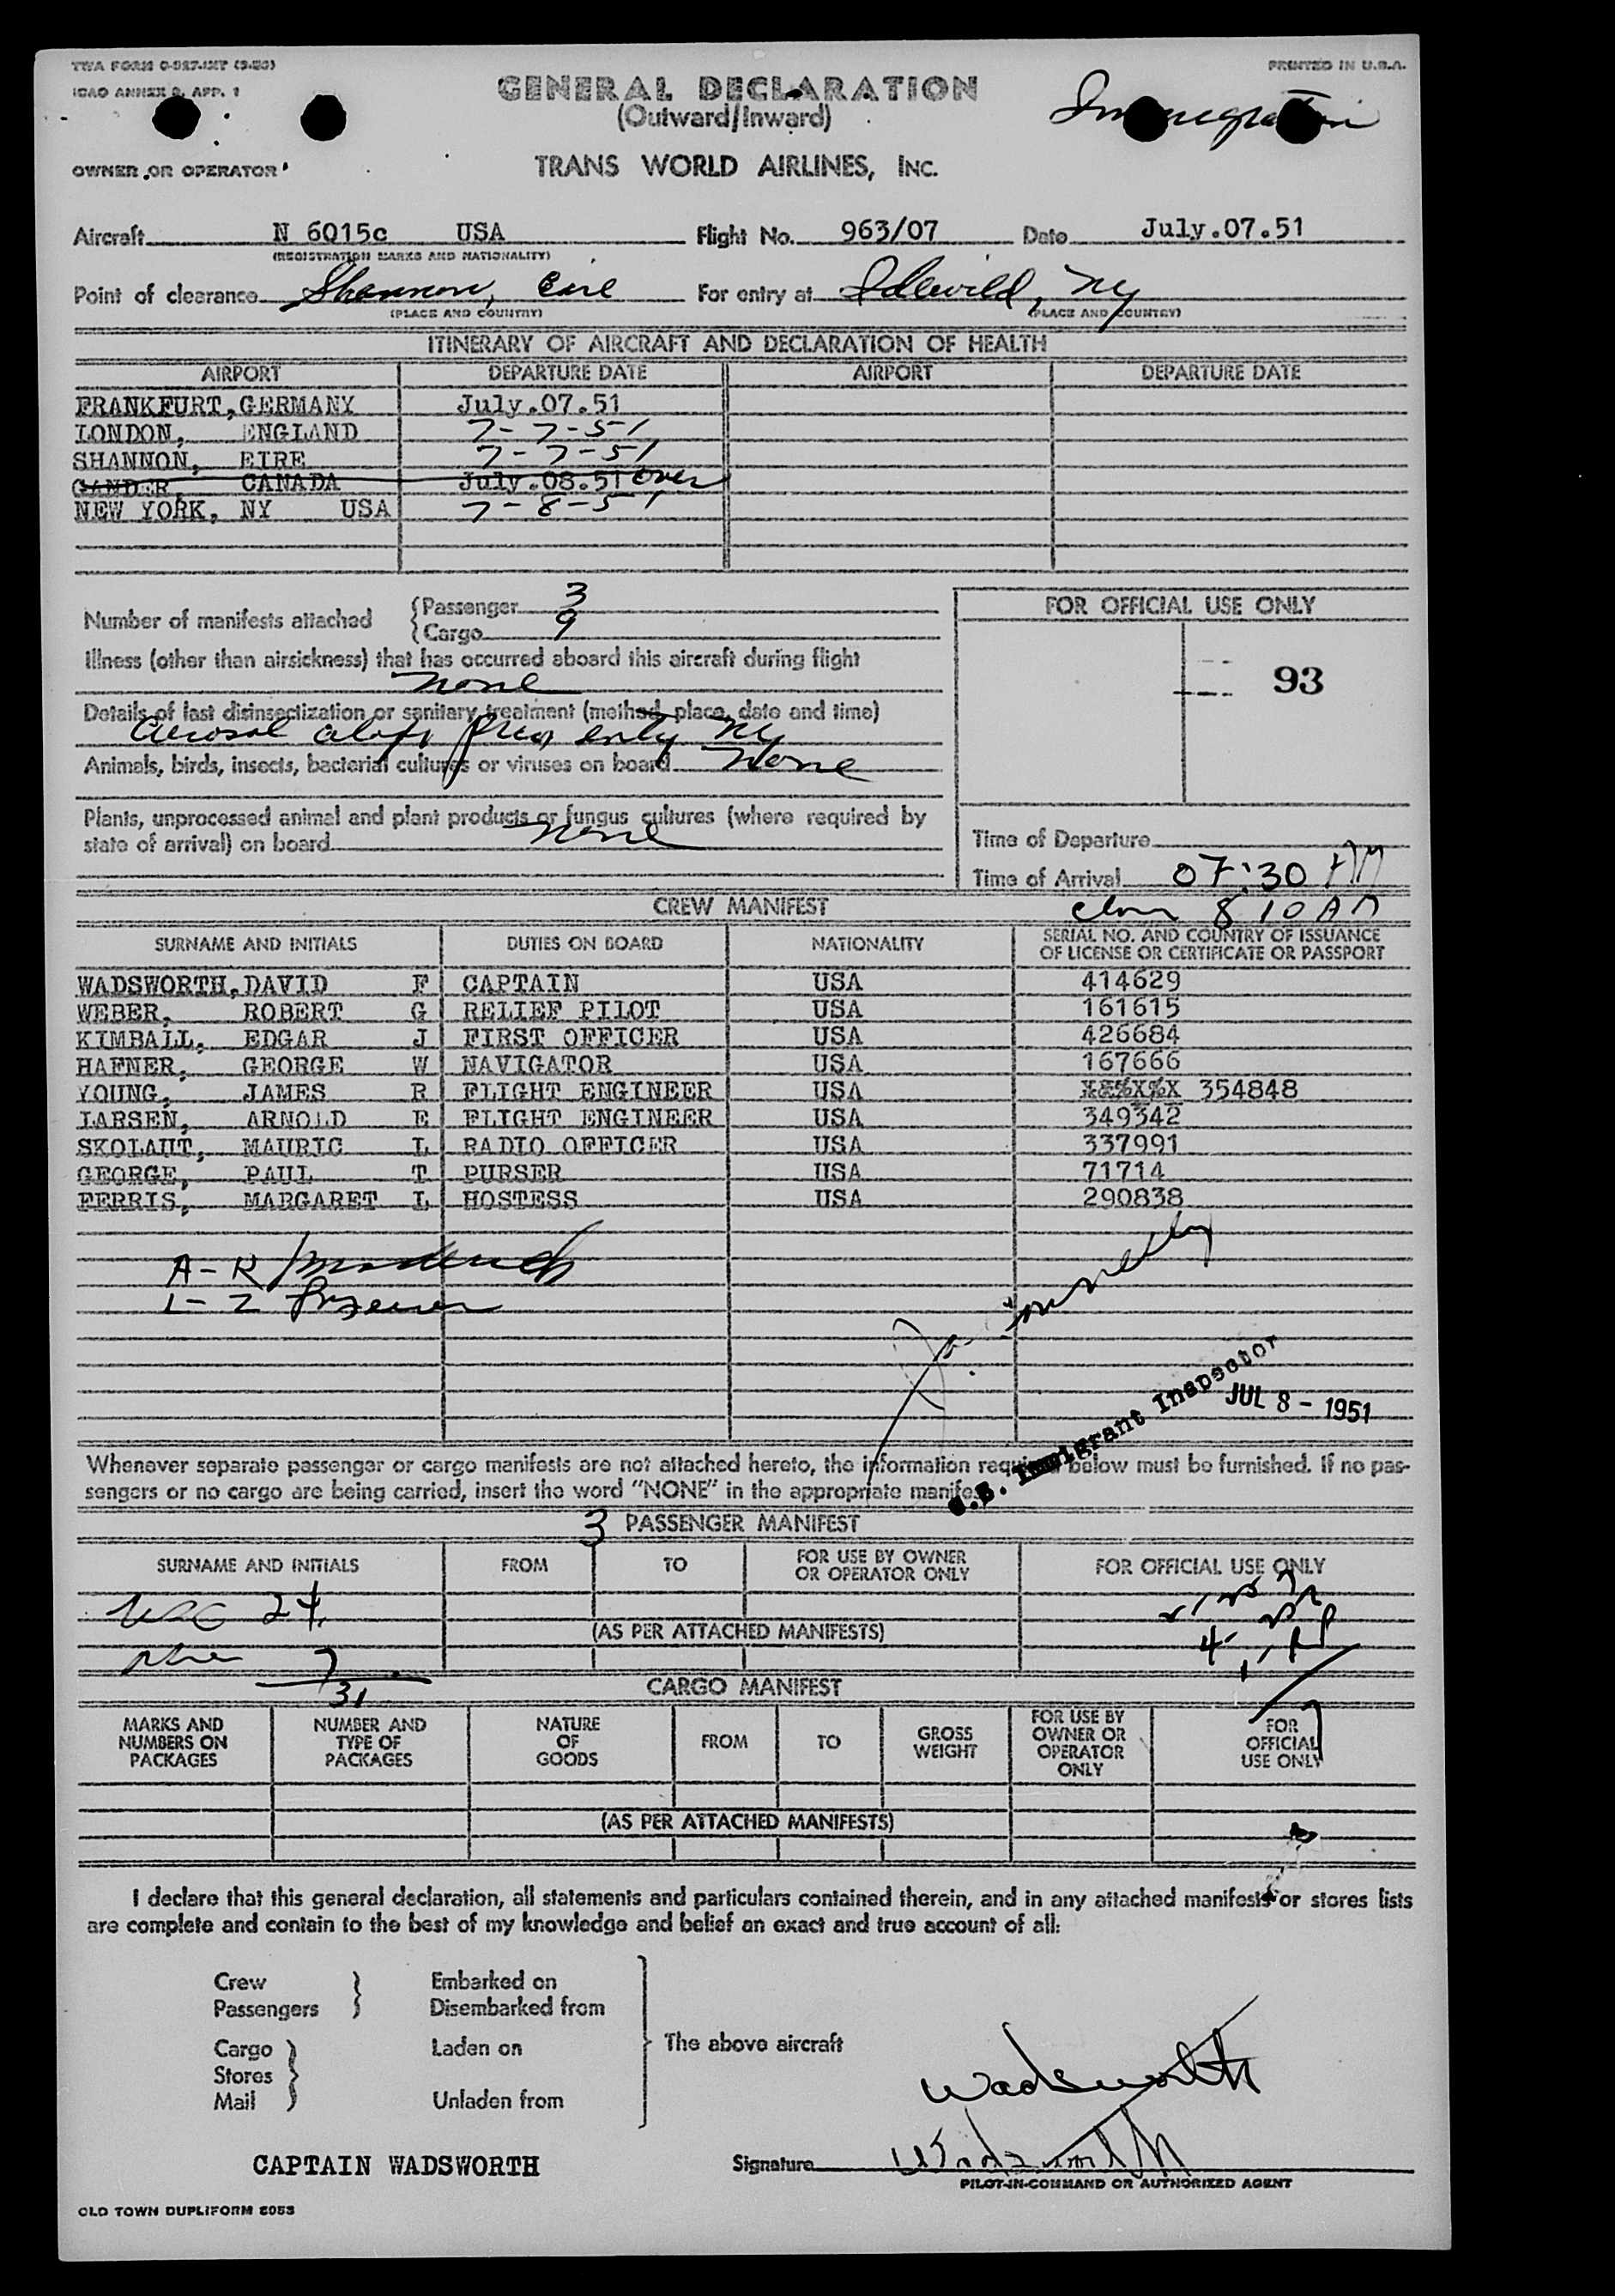 TWA FORM 0-927-INT (3-50)
PRINTED IN U.S.A.
ICAO ANNEX 9, APP. 1
GENERAL DECLARATION
Immigration
(Outward/Inward)
OWNER OR OPERATOR
TRANS WORLD AIRLINES, INC.
Aircraft N 6015c USA Flight No. 963/07 Date July.07.51
(REGISTRATION MARKS AND NATIONALITY)
Point of clearance Shannon, Eire For entry at Idlewild, NY
(PLACE AND COUNTRY) (PLACE AND COUNTRY)
ITINERARY OF AIRCRAFT AND DECLARATION OF HEALTH
AIRPORT DEPARTURE DATE AIRPORT DEPARTURE DATE
FRANKFURT, GERMANY July.07.51
LONDON, ENGLAND 7-7-51
SHANNON, EIRE 7-7-51
GANDER, CANADA July.08.51 over
NEW YORK, NY USA 7-8-51
Number of manifests attached
Passenger 3
Cargo 9
Illness (other than airsickness) that has occurred aboard this aircraft during flight
none
Details of last disinsectization or sanitary treatment (method, place, date and time)
Aerosol aloft prev entry NY
Animals, birds, insects, bacterial cultures or viruses on board None
Plants, unprocessed animal and plant products or fungus cultures (where required by
state of arrival) on board none
FOR OFFICIAL USE ONLY
93
Time of Departure
Time of Arrival 07:30 AM
8 10 AM
CREW MANIFEST
SURNAME AND INITIALS DUTIES ON BOARD NATIONALITY SERIAL NO. AND COUNTRY OF ISSUANCE
OF LICENSE OR CERTIFICATE OR PASSPORT
WADSWORTH, DAVID F CAPTAIN USA 414629
WEBER, ROBERT G RELIEF PILOT USA 161615
KIMBALL, EDGAR J FIRST OFFICER USA 426684
HAFNER, GEORGE W NAVIGATOR USA 167666
YOUNG, JAMES R FLIGHT ENGINEER USA 354848
LARSEN, ARNOLD E FLIGHT ENGINEER USA 349342
SKOLAUT, MAURIC L RADIO OFFICER USA 337991
GEORGE, PAUL T PURSER USA 71714
FERRIS, MARGARET L HOSTESS USA 290838
A-K
L-Z
U.S. Immigrant Inspector
JUL 8 - 1951
Whenever separate passenger or cargo manifests are not attached hereto, the information required below must be furnished. If no pas-
sengers or no cargo are being carried, insert the word "NONE" in the appropriate manifest.
3 PASSENGER MANIFEST
SURNAME AND INITIALS FROM TO FOR USE BY OWNER OR OPERATOR ONLY FOR OFFICIAL USE ONLY
USC 24
(AS PER ATTACHED MANIFESTS)
7
31
CARGO MANIFEST
MARKS AND NUMBERS ON PACKAGES NUMBER AND TYPE OF PACKAGES NATURE OF GOODS FROM TO GROSS WEIGHT FOR USE BY OWNER OR OPERATOR ONLY FOR OFFICIAL USE ONLY
(AS PER ATTACHED MANIFESTS)
I declare that this general declaration, all statements and particulars contained therein, and in any attached manifests or stores lists
are complete and contain to the best of my knowledge and belief an exact and true account of all:
Crew Embarked on
Passengers Disembarked from
Cargo Laden on The above aircraft
Stores
Mail Unladen from
Wadsworth
CAPTAIN WADSWORTH Signature Wadsworth
PILOT-IN-COMMAND OR AUTHORIZED AGENT
OLD TOWN DUPLIFORM 8053